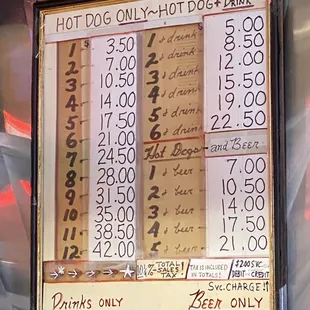 HOT DOG ONLY~HOT DOG + DRINK
1 $ 3.50 1 & drink 5.00
2 7.00 2 & drink 8.50
3 10.50 3 & drink 12
4 14.00 4 & drink 15.50
5 17.50 5 & drink 19.00
6 21.00 6 & drink 22.50
7 24.50 Hot Dogs and Beer
8 28.00 1 & beer 7.00
9 31.50 2 & beer 10.50
10 35.00 3 & beer 14.00
11 38.50 4 & beer 17.50
12 42.00 5 & beer 21.00
TOTAL SALES TAX! TAX IS INCLUDED $2.00 SVC. DEBIT CREDIT
SVC. CHARGE!
Drinks ONLY BEER ONLY